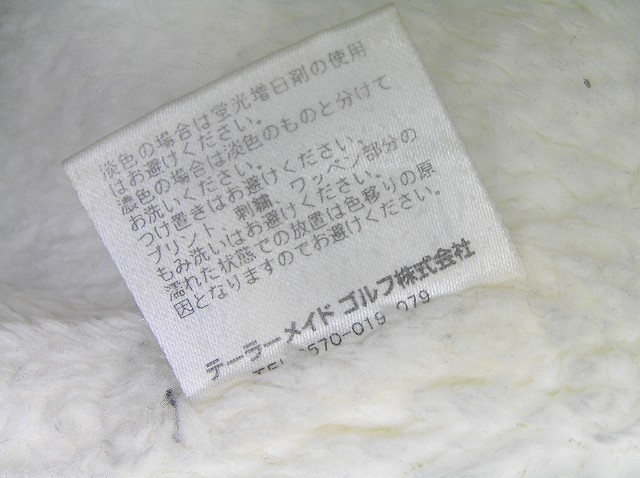 淡色の場合は蛍光増白剤の使用
はお避けください。
濃色の場合は淡色のものと分けて
お洗いください。
つけ置きはお避けください。
プリント、刺繍、ワッペン部分の
もみ洗いはお避けください。
濡れた状態での放置は色移りの原
因となりますのでお避けください。
テーラーメイド ゴルフ株式会社
TEL 570-019 079